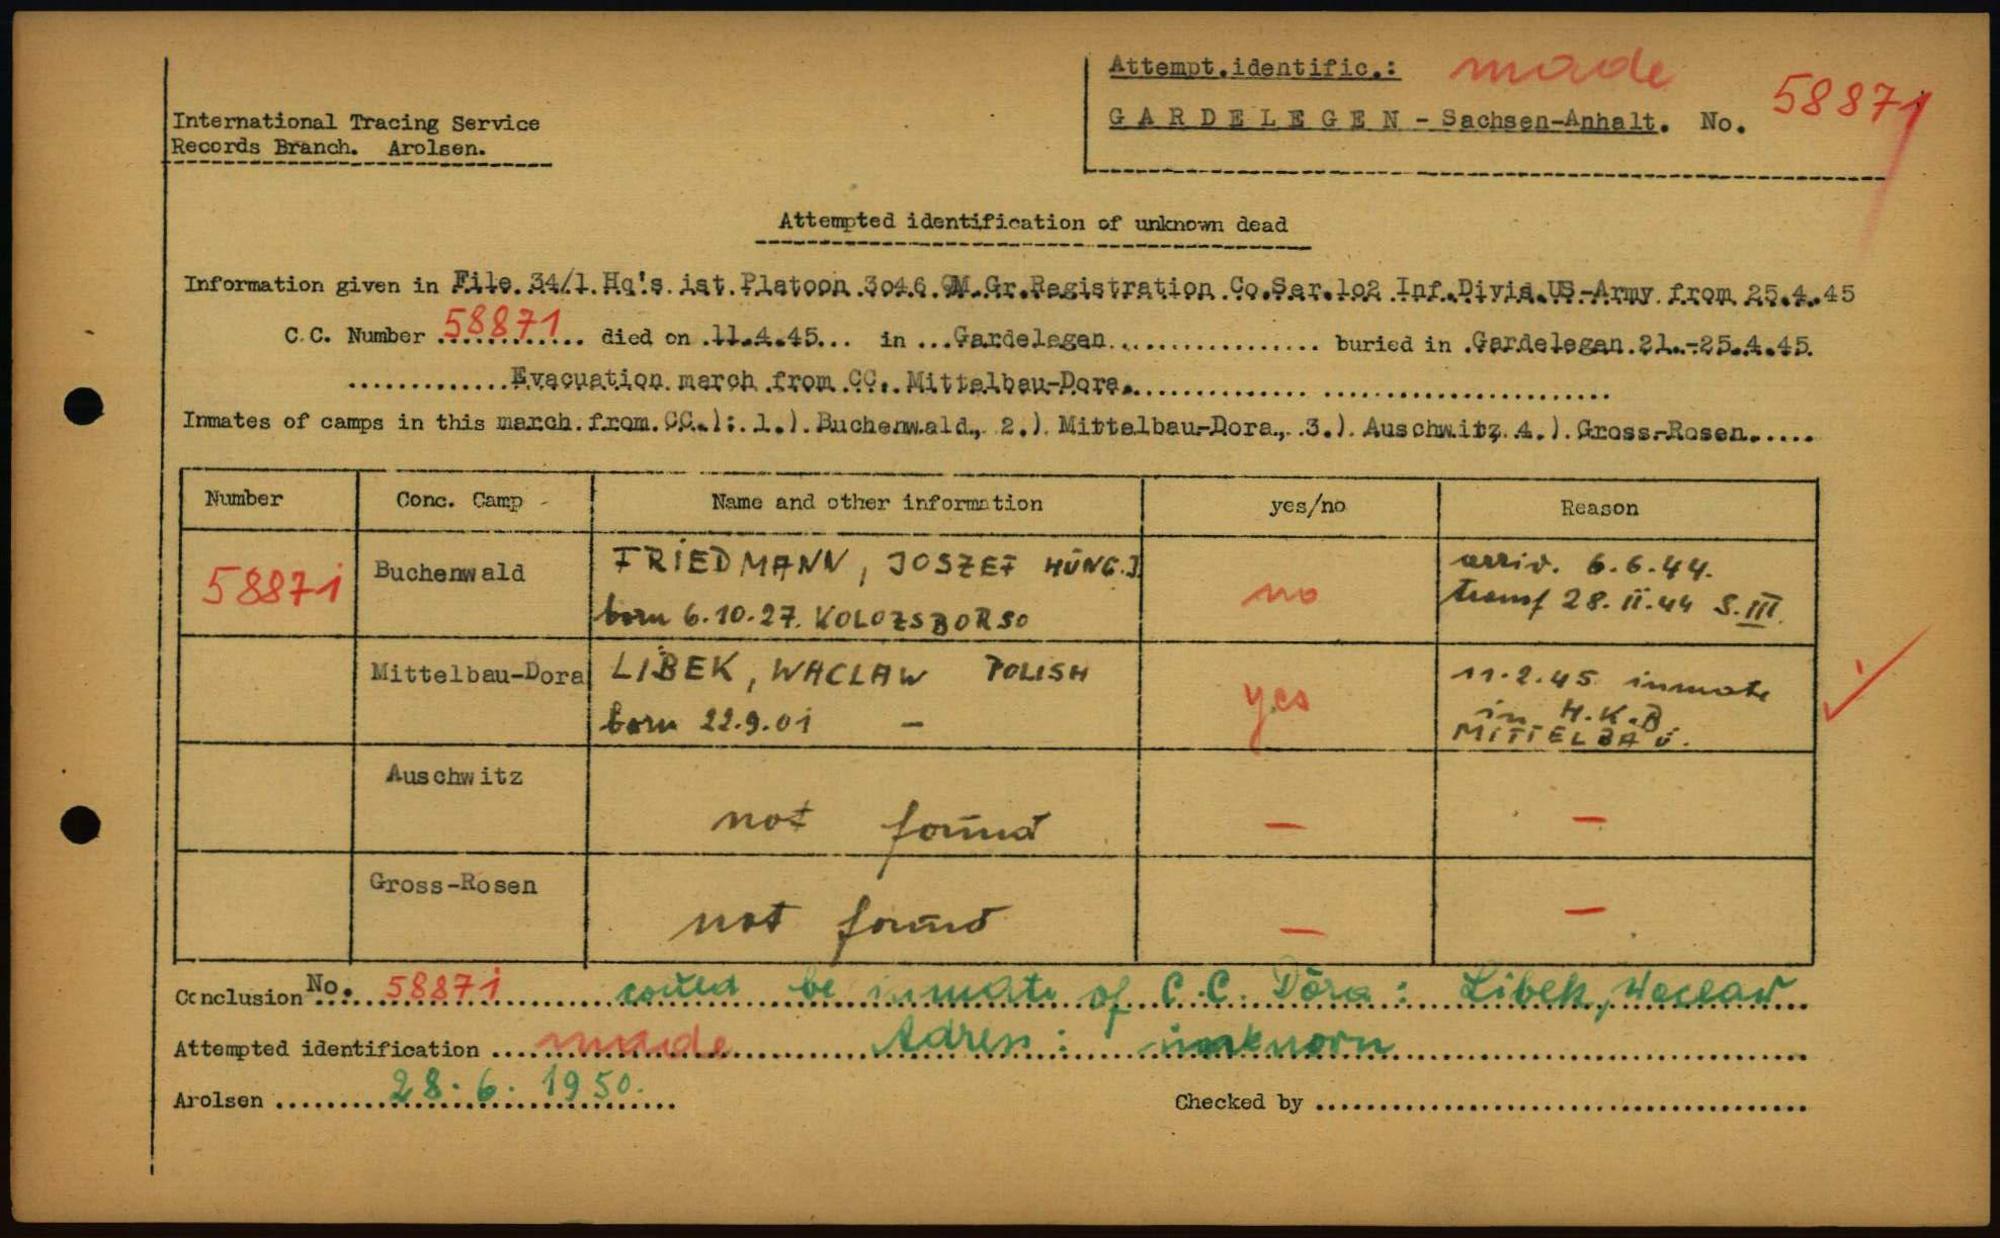 Attempt.identific.: made
GARDELEGEN - Sachsen-Anhalt. No. 58871
International Tracing Service
Records Branch. Arolsen.
Attempted identification of unknown dead
Information given in File. 34/1. Hq's. ist. Platoon 3o46 QM. Gr. Registration. Co. Ser. 1o2 Inf. Divis. US.-Army from 25.4.45
C.C. Number 58871 died on 11.4.45... in ...Gardelegen................ buried in .Gardelegen.21.-25.4.45.
Evacuation march from CC. Mittelbau-Dora.
Inmates of camps in this march from CC.): 1.) Buchenwald, 2.) Mittelbau-Dora, 3.) Auschwitz 4.) Gross-Rosen.....
Number Conc. Camp Name and other information yes/no Reason
58871 Buchenwald FRIEDMANN, JOSZEF HUNG.J. no arriv. 6.6.44.
born 6.10.27. KOLOZSBORSO transf 28.II.44 S.III.
Mittelbau-Dora LIBEK, WACLAW POLISH yes 11.2.45 inmate
born 22.9.01 - in H.K.B.
MITTELBAU.
Auschwitz not found - -
Gross-Rosen not found - -
Conclusion No. 58871 could be inmate of C.C. Dora: Libek, Waclaw
Attempted identification made Adress: unknown
Arolsen 28.6.1950. Checked by